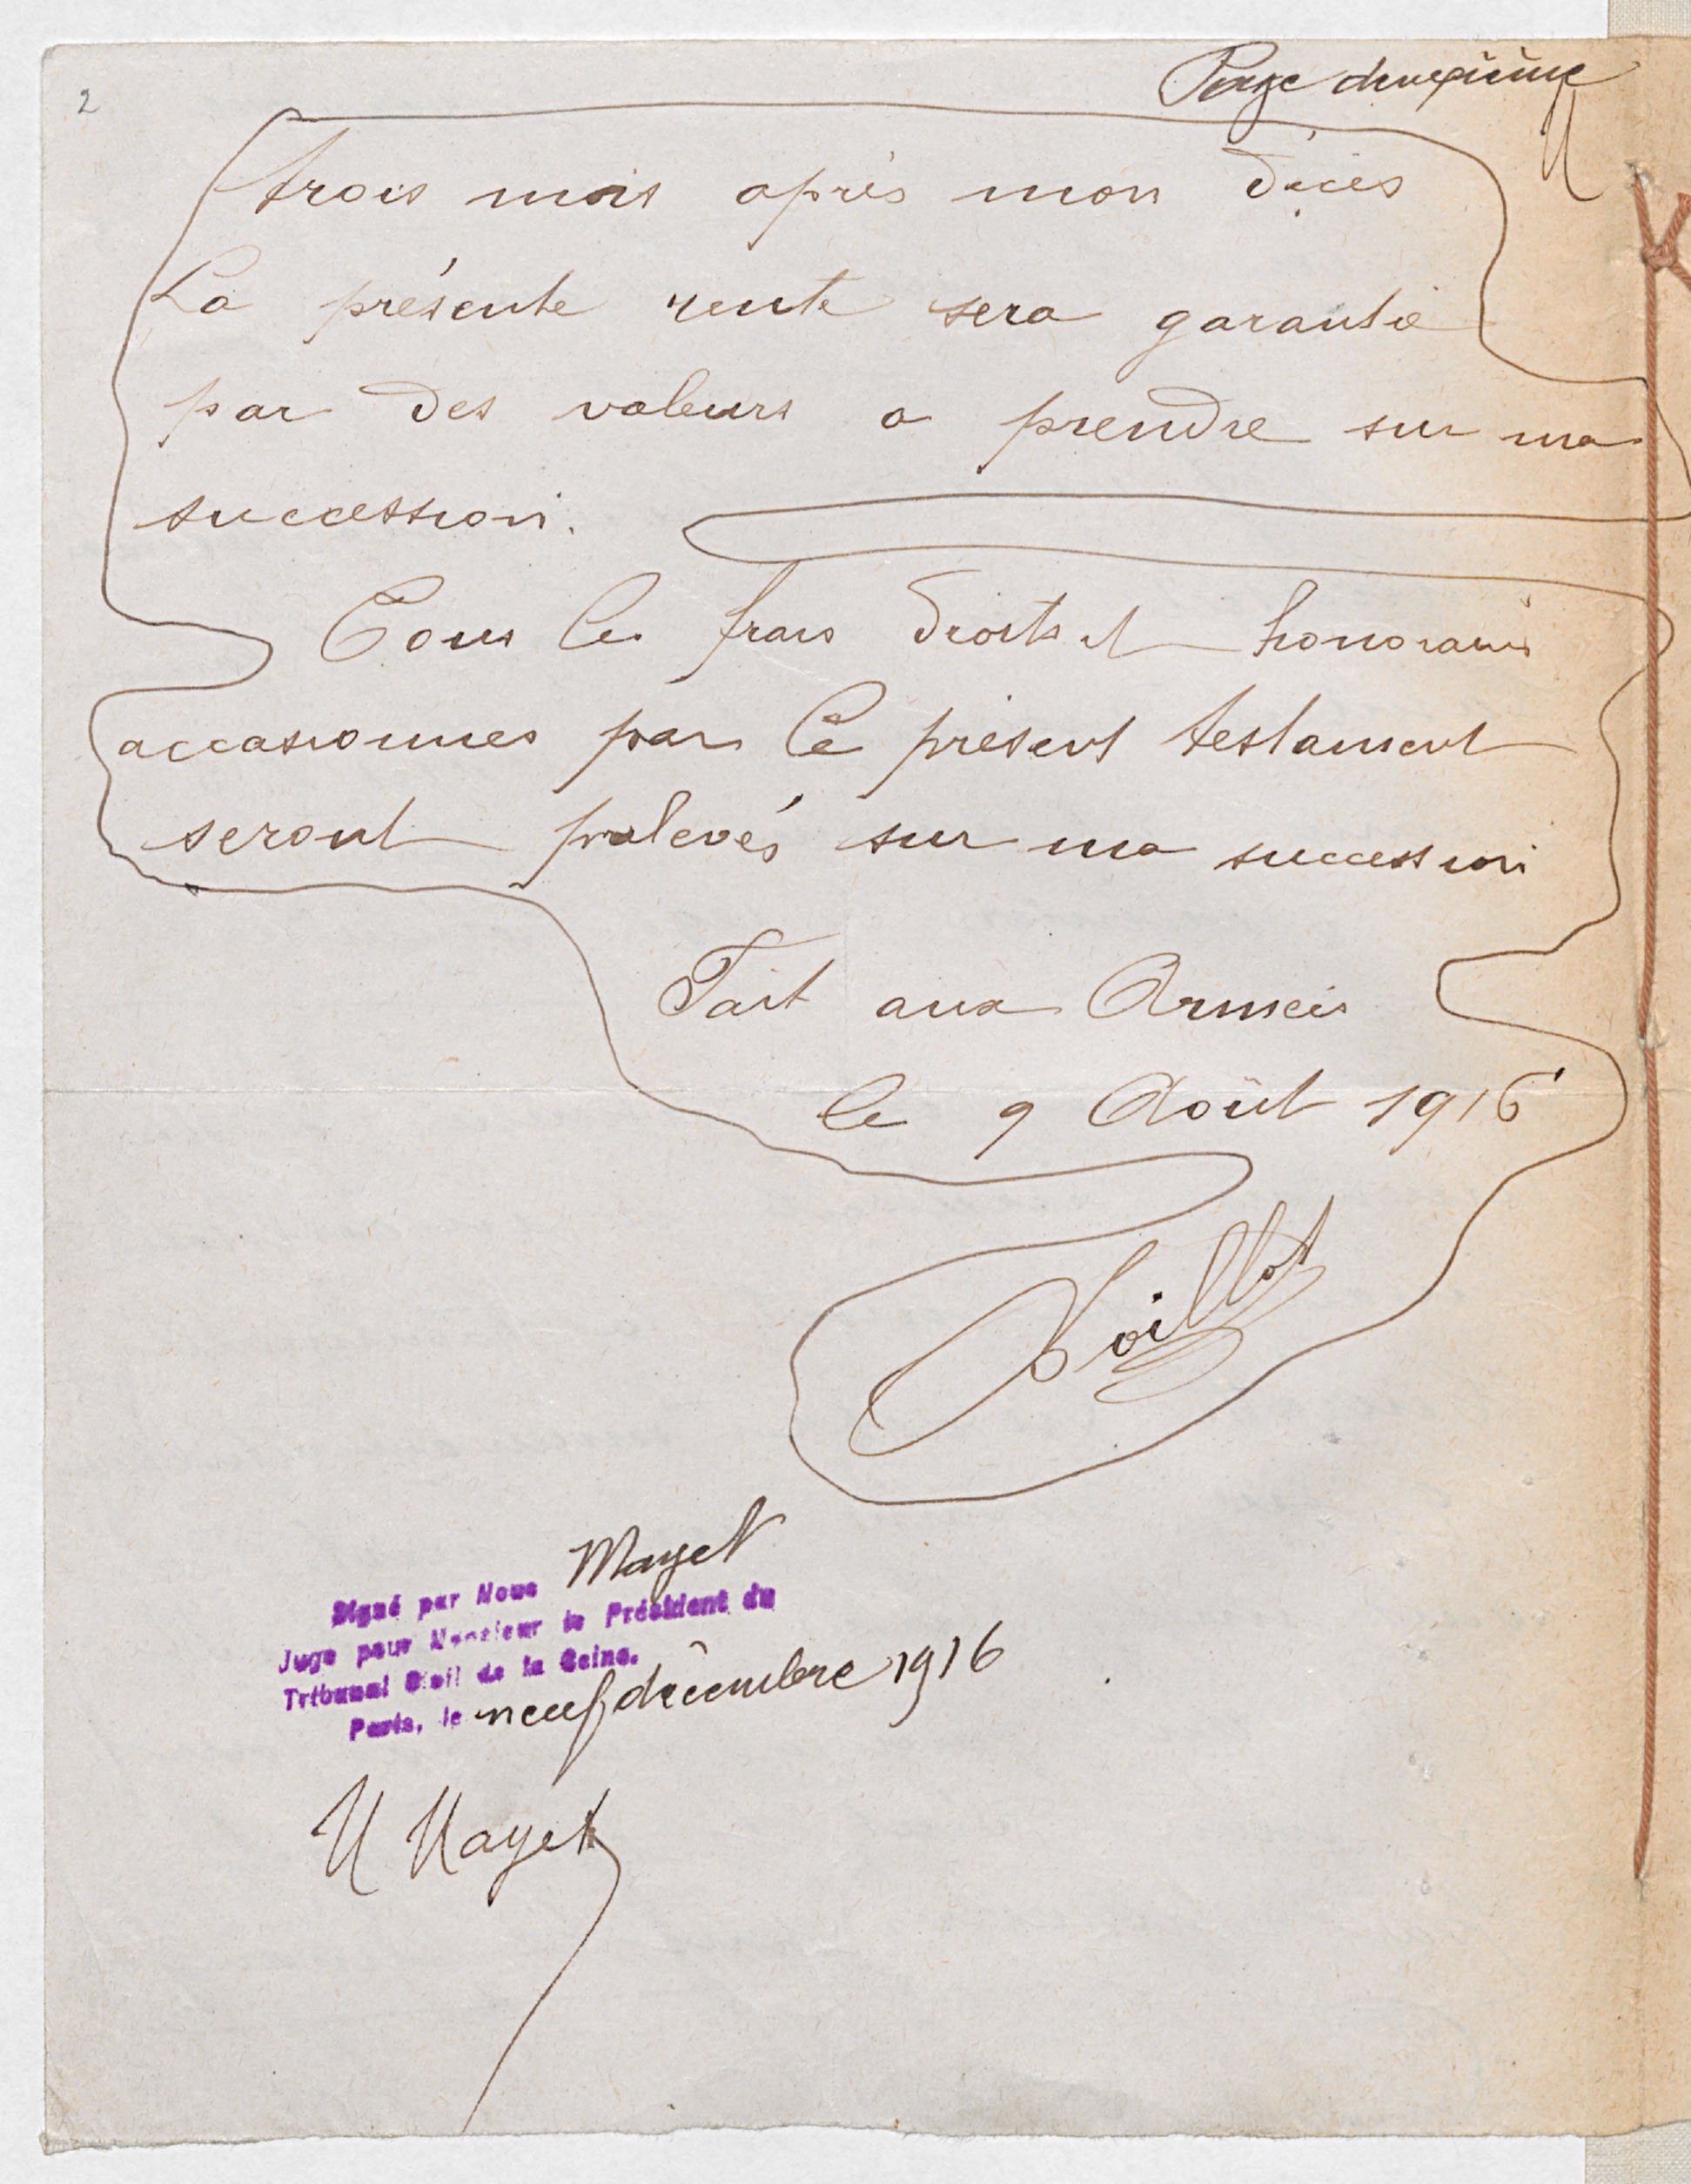 2
Page deuxième
trois mois après mon décès
La présente rente sera garantie
par des valeurs a prendre sur ma
succession.
Tous les frais droits et honoraires
accasionnes par le présent testament
seront prelevés sur ma succession
Fait aux Armées
le 9 Août 1916
Signé par Nous Mayet
Juge pour Monsieur le Président du
Tribunal Civil de la Seine.
Paris, le neuf décembre 1916
Mayet